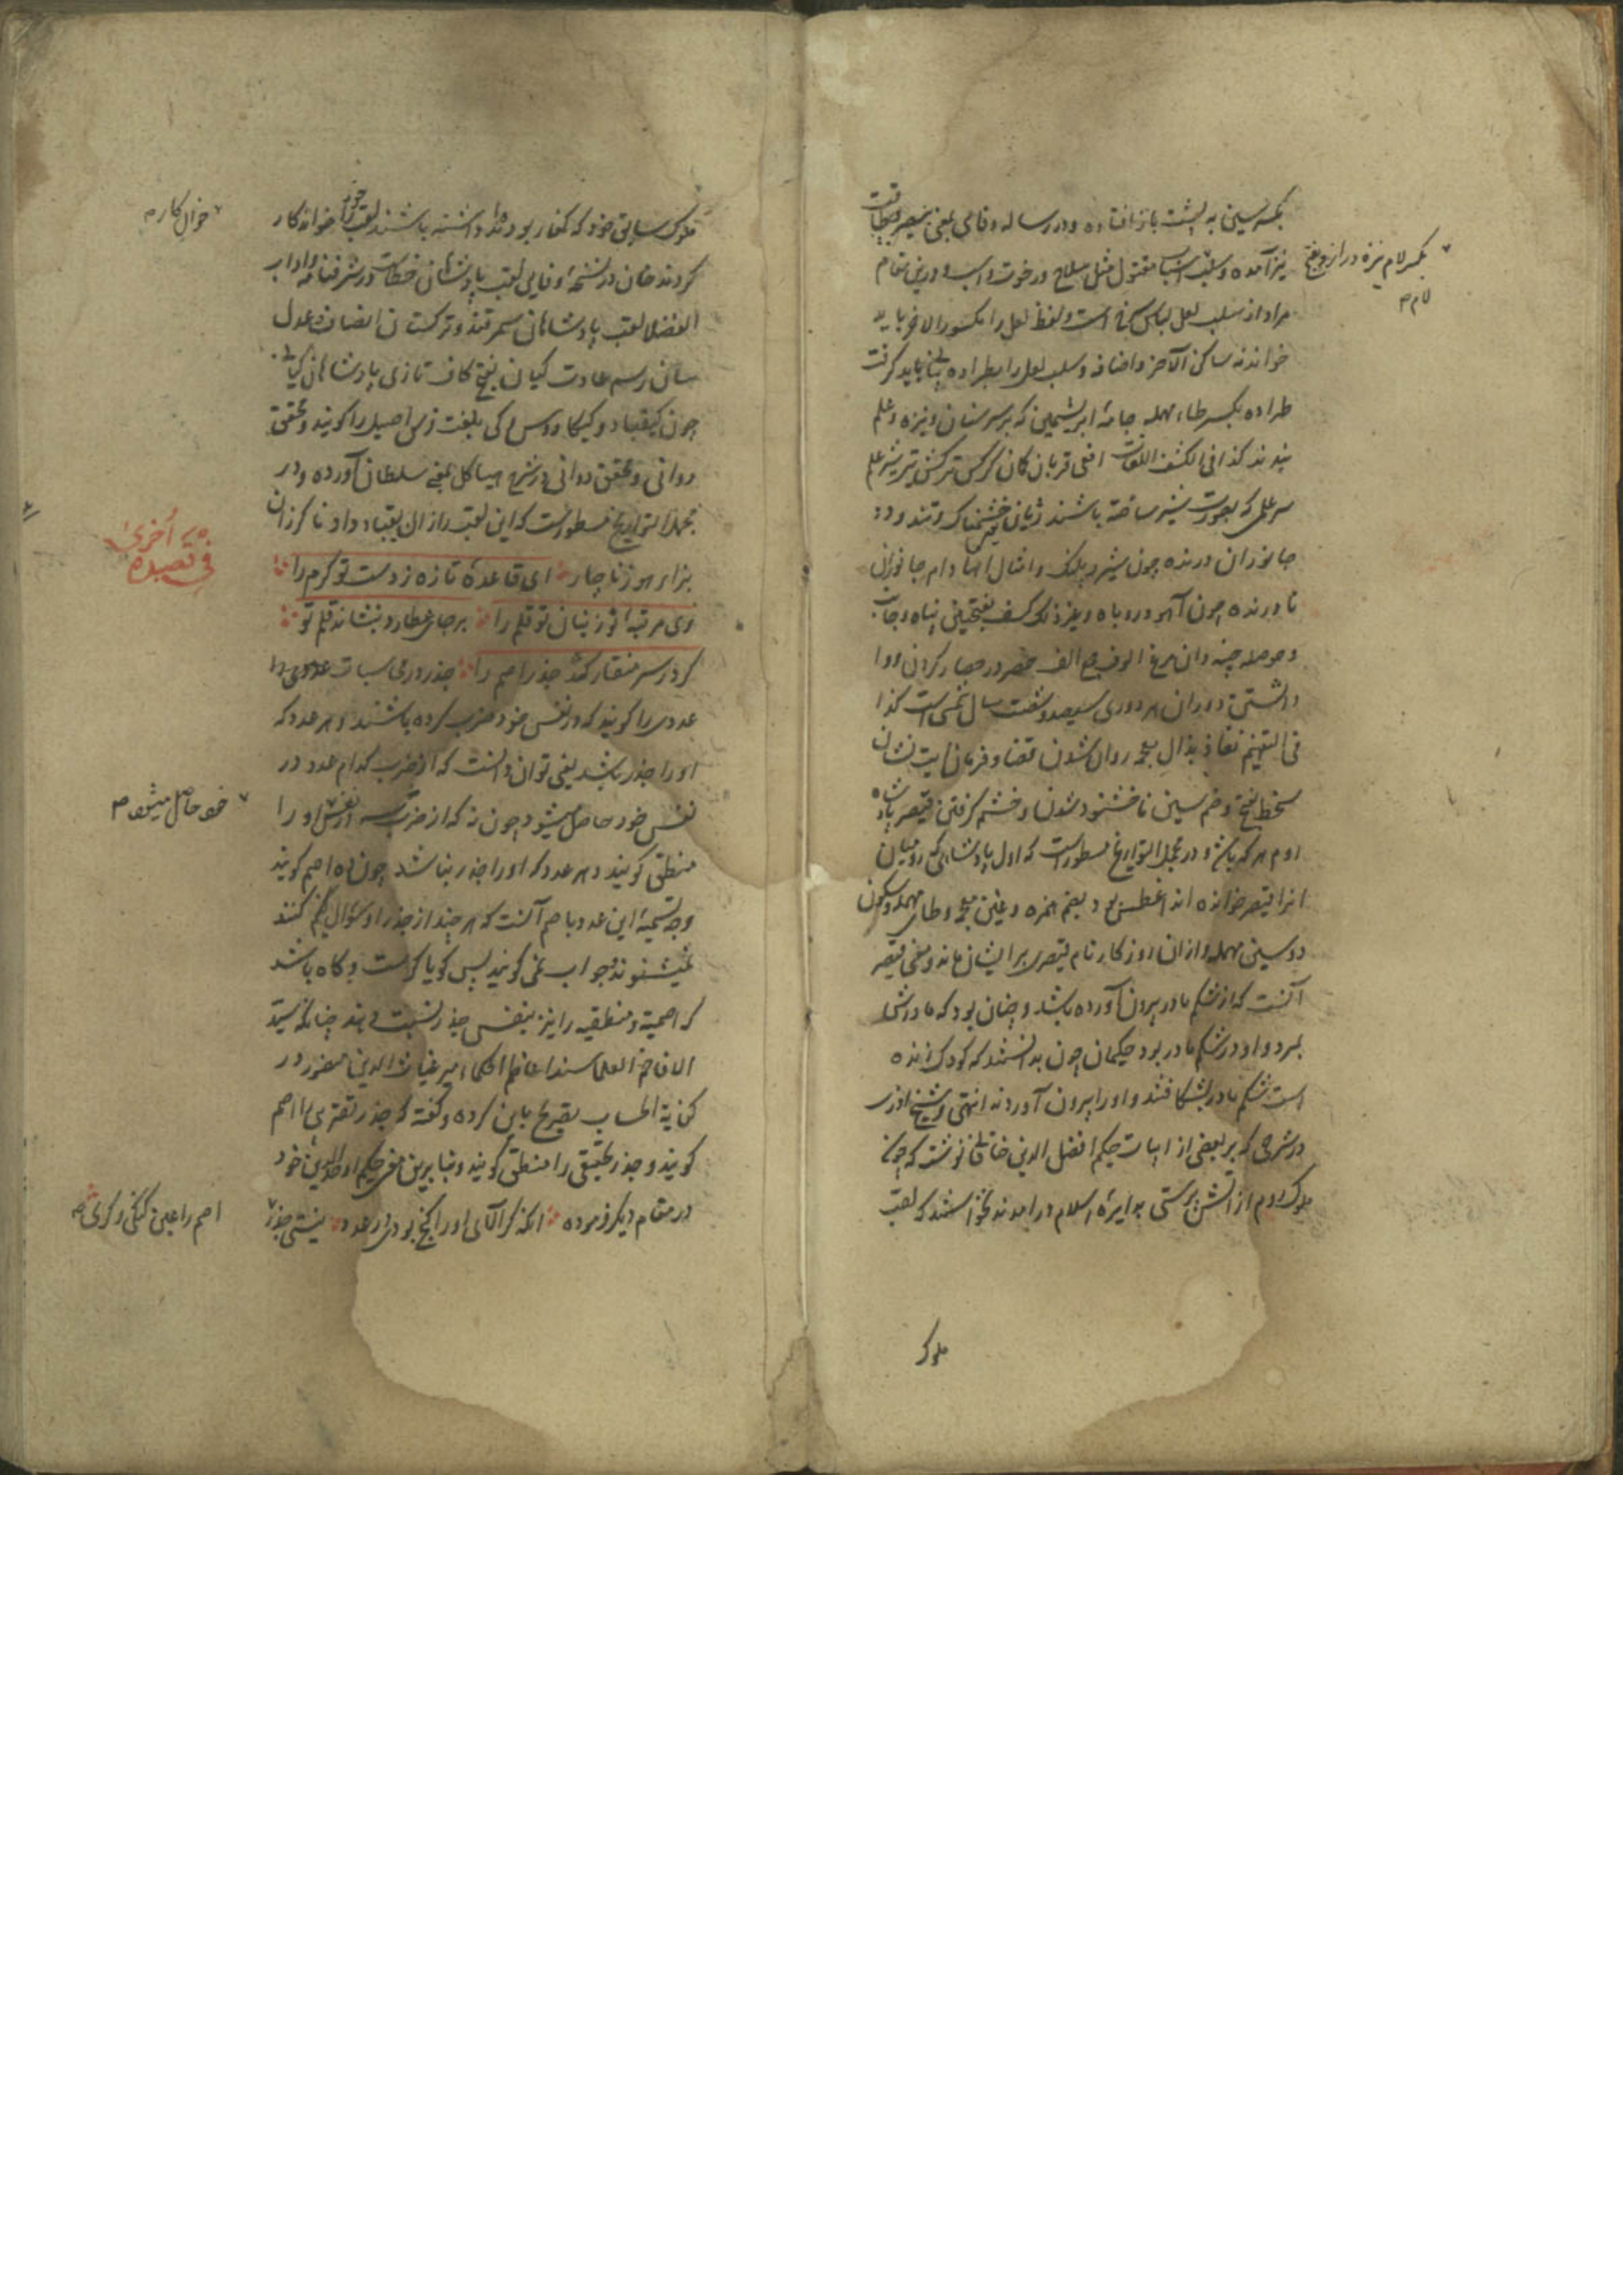 بکسر سین به پشت باز افتاده و در رساله وفائی بمعنی بیصبر و بیطاقت
نیز آمده و سلب اسباب مقتول مثل سلاح و رخوت و اسب و درین مقام
مراد از سلب لعل لباس سرخ است و لفظ لعل را مکسور الآخر باید
خواند نه ساکن الآخر و اضافه و سلب لعل را بطراده باید گرفت
طراده بکسر طاء مهمله جامهٔ ابریشمین که بر سر سنان و نیزه و علم
بندند کذا فی کشف اللغات افعی قربان کمان کرکس ترکش تیر شیر علم
سر علم که بصورت شیر ساخته باشند ژیان خشمناک و تند و دد
جانوران درنده چون شیر و پلنگ و امثال آنها و دام جانوران
نا درنده چون آهو و روباه و غیر ذلک کنف بفتحتین پناه و جانب
و حوصله چینه دان مرغ الوف جمع الف حصر در حصار کردن و وا
داشتن دوران هر دوری سیصد و شصت سال شمسی است کذا
فی التفهیم نفاذ بذال معجمه روان شدن قضا و فرمان آیت نشان
سخط بفتح و ضم سین ناخشنود شدن و خشم گرفتن قیصر پادشاه
روم هر که باشد و در مجمل التواریخ مسطور است که اول پادشاهی که رومیان
او را قیصر خوانده اند اغطس بود بضم همزه و غین معجمه و طای مهمله و سکون
دو سین مهمله و از ان روزگار نام قیصری بر ایشان ماند و معنی قیصر
آنست که از شکم مادر بیرون آورده باشند و چنان بود که مادرش
بمرد و او در شکم مادر بود حکیمان چون بدانستند که کودک زنده
است شکم مادر بشکافتند و او را بیرون آوردند انتهی و شیخ آذری
در شرحی که بر بعضی از ابیات حکیم افضل الدین خاقانی نوشته که چون
ملوک روم از آتش پرستی بدایرهٔ اسلام درآمدند نخواستند که لقب
ملوک
بکسر لام نیزه دراز و بفتح
لام م
ملوک سابق خود که کفار بودند داشته باشند لقب خود را خواندکار
کردند خان در نسخهٔ وفایی لقب پادشاهان خطاست در شرفنامه و اداب
الفضلا لقب پادشاهان سمرقند و ترکستان انصاف عدل
سان رسم عادت کیان بفتح کاف تازی پادشاهان کیانی
چون کیقباد و کیکاووس و کی بلغت فرس اصیل را گویند و محقق
دوانی و محقق دوانی در شرح هیاکل بمعنی سلطان آورده و در
مجمل التواریخ مسطور است که این لقب را زال بکیقباد داد ناگزران
بزاء هوز ناچار ای قاعدهٔ تازه ز دست تو کرم را
وی مرتبهٔ نو ز بنان تو قلم را بر جای عطارد بنشاند قلم تو
گر در سر منقار کشد جذر اصم را جذر در محاسبات عددی
عددی را گویند که در نفس خود ضرب کرده باشند و هر عدد که
او را جذر باشد یعنی توان دانست که از ضرب کدام عدد در
نفس خود حاصل میشود چون نه که از ضرب سه در نفسش او را
منطق گویند و هر عدد که او را جذر نباشد چون ده اصم گویند
وجه تسمیهٔ این عدد باصم آنست که هر چند از جذر او سؤال کنند
نمیشنوند و جواب نمی گویند پس گویا کر است و گاه باشد
که اصمیة و منطقیه را نیز بنفس جذر نسبت دهند چنانکه سید
الافاخم العلما سند اعاظم الحکما امیر غیاث الدین منصور در
کفایة الحساب تصریح باین کرده و گفته که جذر تقریبی را اصم
گویند و جذر تحقیقی را منطق گویند و بنابرین معنی حکیم اوحد الدین خود
در مقام دیگر فرموده آنکه گر آلای او را گنج بودی در عدد نیستی جذر
خوانکار م
وله اخری
فی قصیده
خود حاصل میشود م
اصم را عیب گنگی و کری م